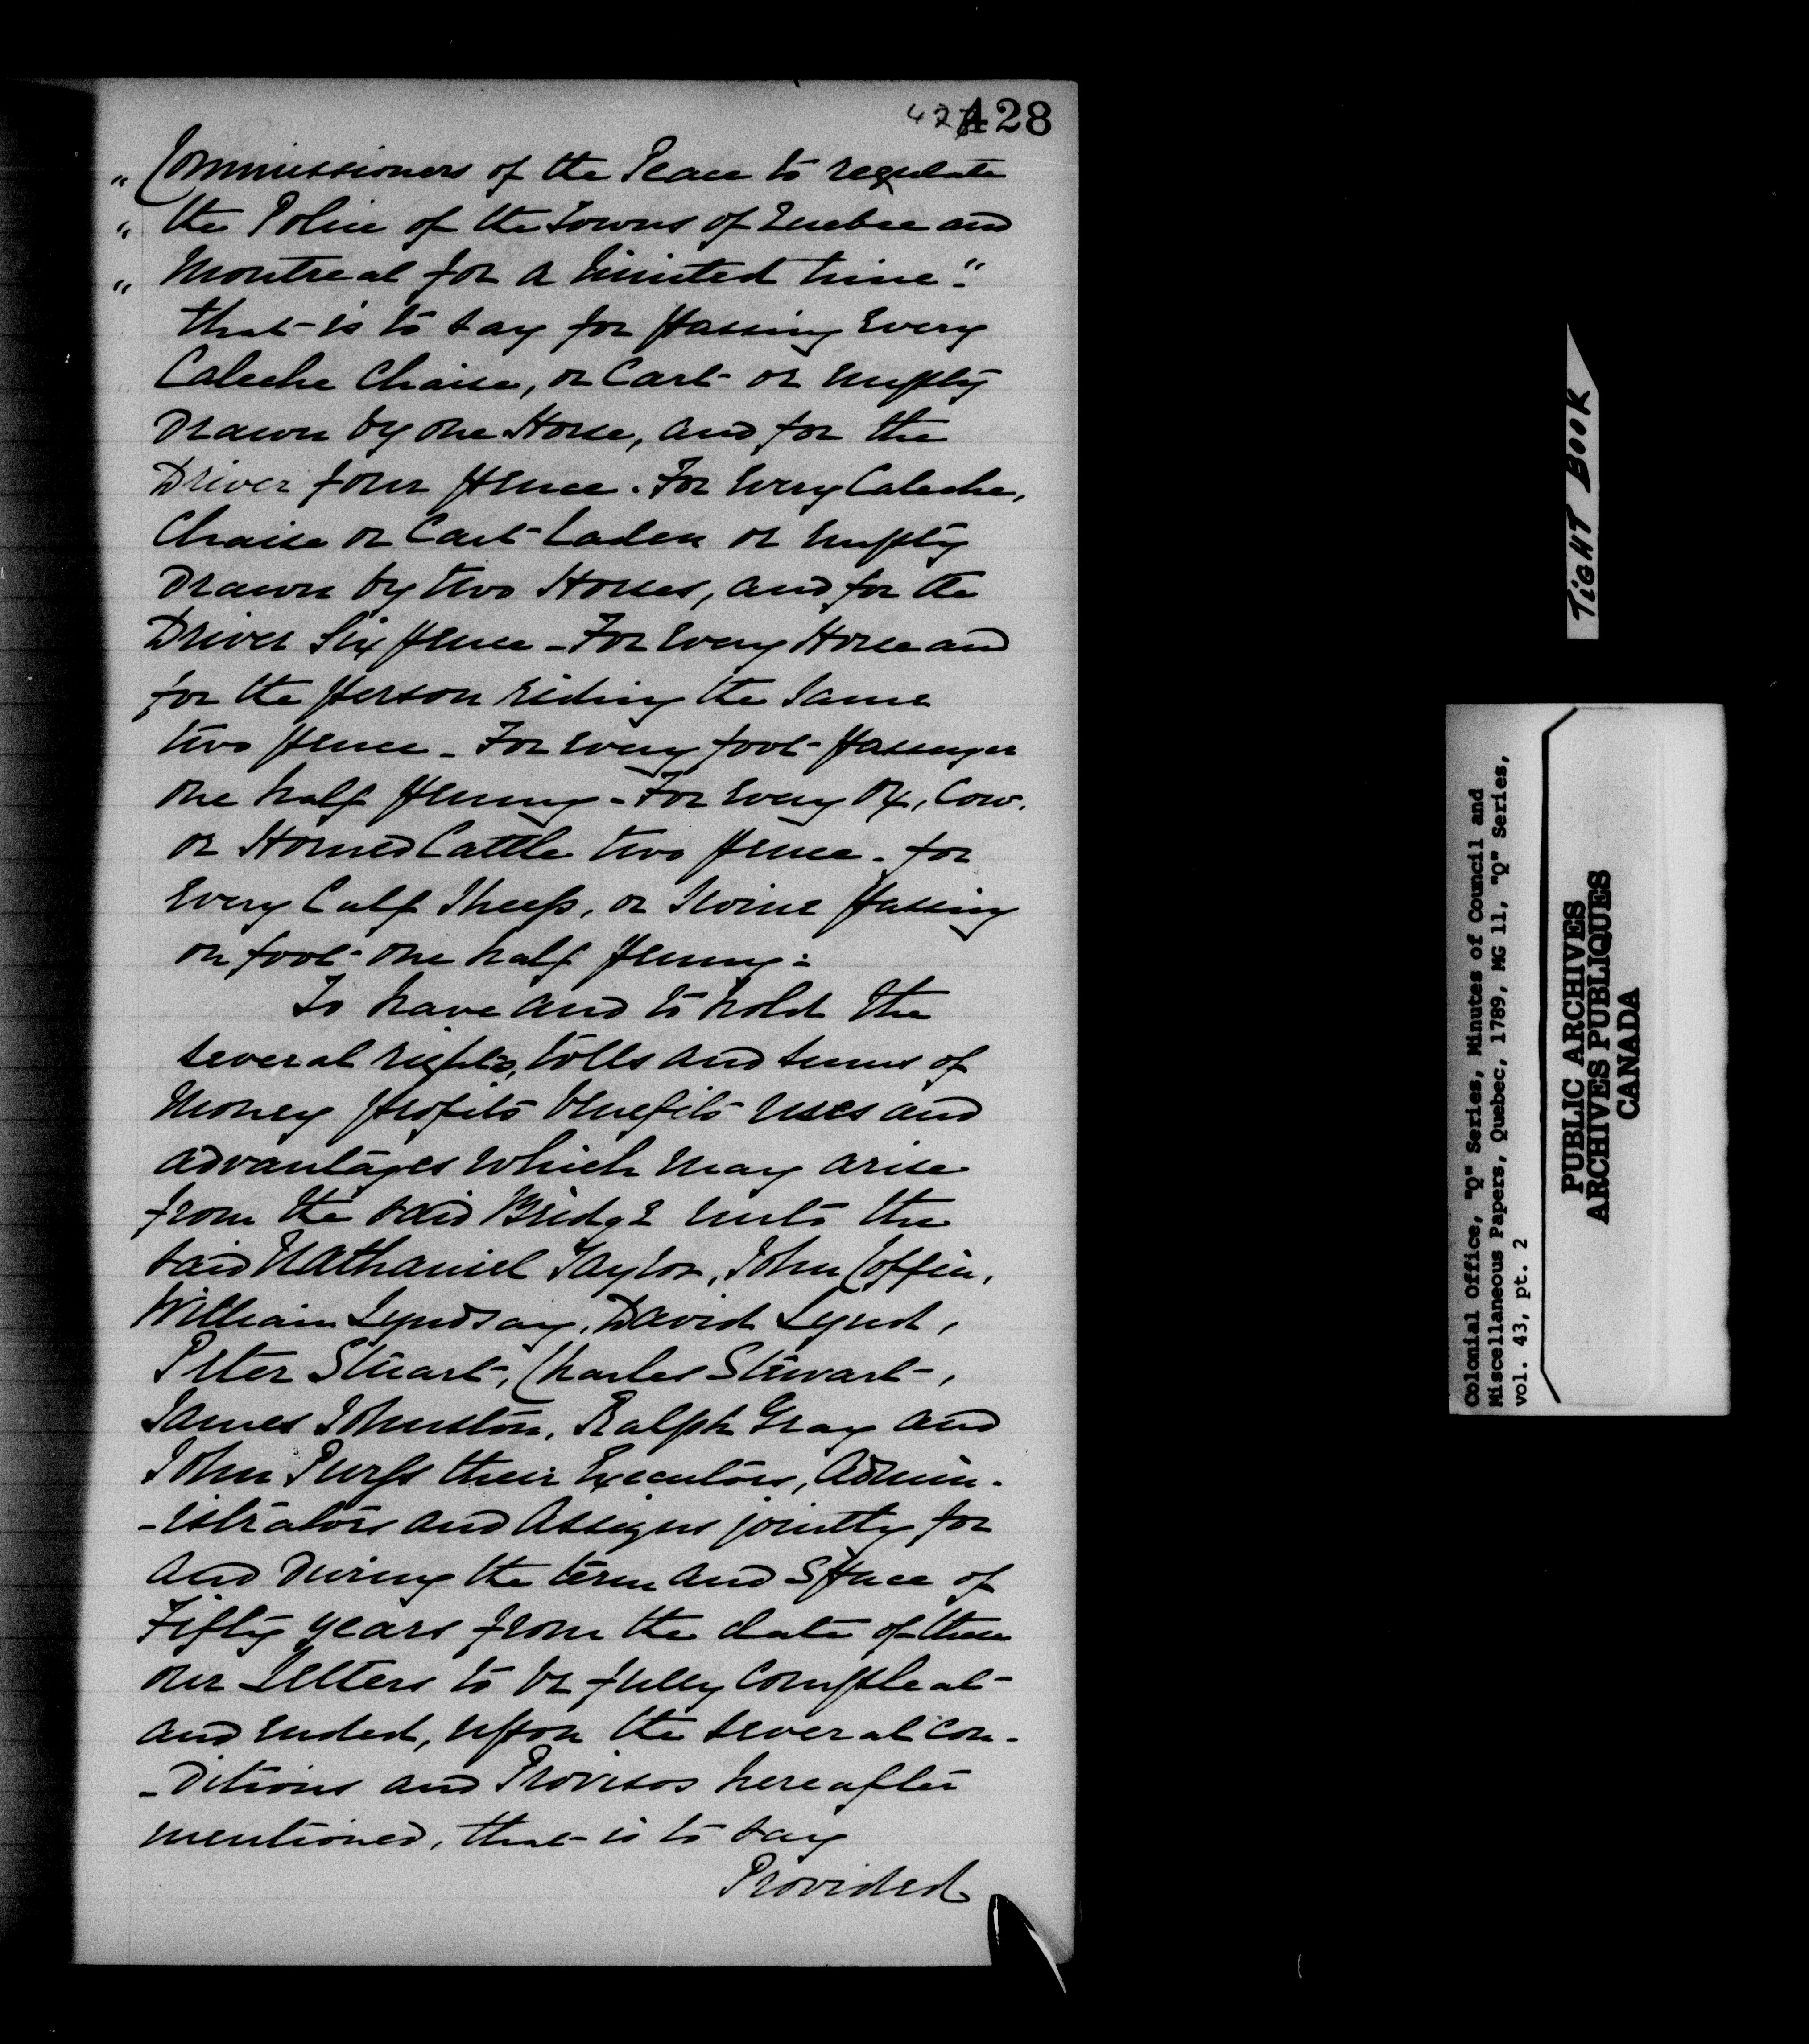 428
" Commissioners of the Peace to regulate
" the Police of the Towns of Quebec and
" Montreal for a limited time."
that is to say for passing Every
Caleche Chaise, or Cart or Empty
Drawn by one Horse, and for the
Driver four pence. For Every Caleche,
Chaise or Cart Laden or Empty
Drawn by two Horses, and for the
Driver Six pence - For Every Horse and
for the person riding the Same
two pence - For Every foot passenger
one half penny - For Every Ox, Cow.
or Horned Cattle two pence - for
Every Calf Sheep, or Swine passing
on foot one half penny:
To have and to hold the
several rights, tolls and sums of
Money profits benefits uses and
advantages which may arise
from the said Bridge unto the
said Nathaniel Taylor, John Coffin,
William Lyndsay, David Lynd,
Peter Stuart, Charles Stewart,
James Johnston, Ralph Gray and
John Purss their Executors, Admin-
-istrators and Assigns jointly for
and During the term and Space of
Fifty years from the date of these
our Letters to be fully Compleat
and ended, upon the several con-
-ditions and Provisos hereafter
mentioned, that is to say
Provided
TIGHT BOOK
Colonial Office, "Q" Series, Minutes of Council and
Miscellaneous Papers, Quebec, 1789, MG 11, "Q" Series,
vol. 43, pt. 2
PUBLIC ARCHIVES
ARCHIVES PUBLIQUES
CANADA